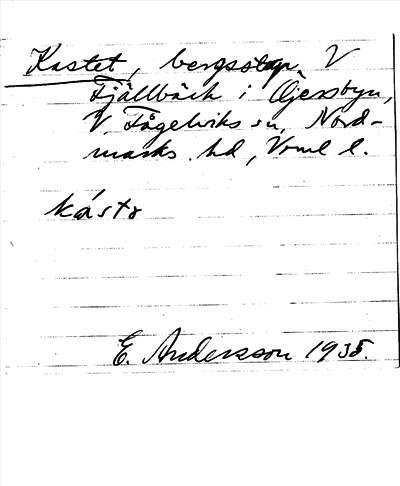 Kastet, bergstopp V
Fjällbäck i Öjersbyn,
V. Fågelviks sn, Nord-
marks hd, Vrml l.
kástə
E. Andersson 1935.